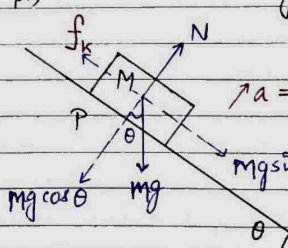 f_k
N
M
a =
P
θ
mg sin
mg cos θ
mg
θ